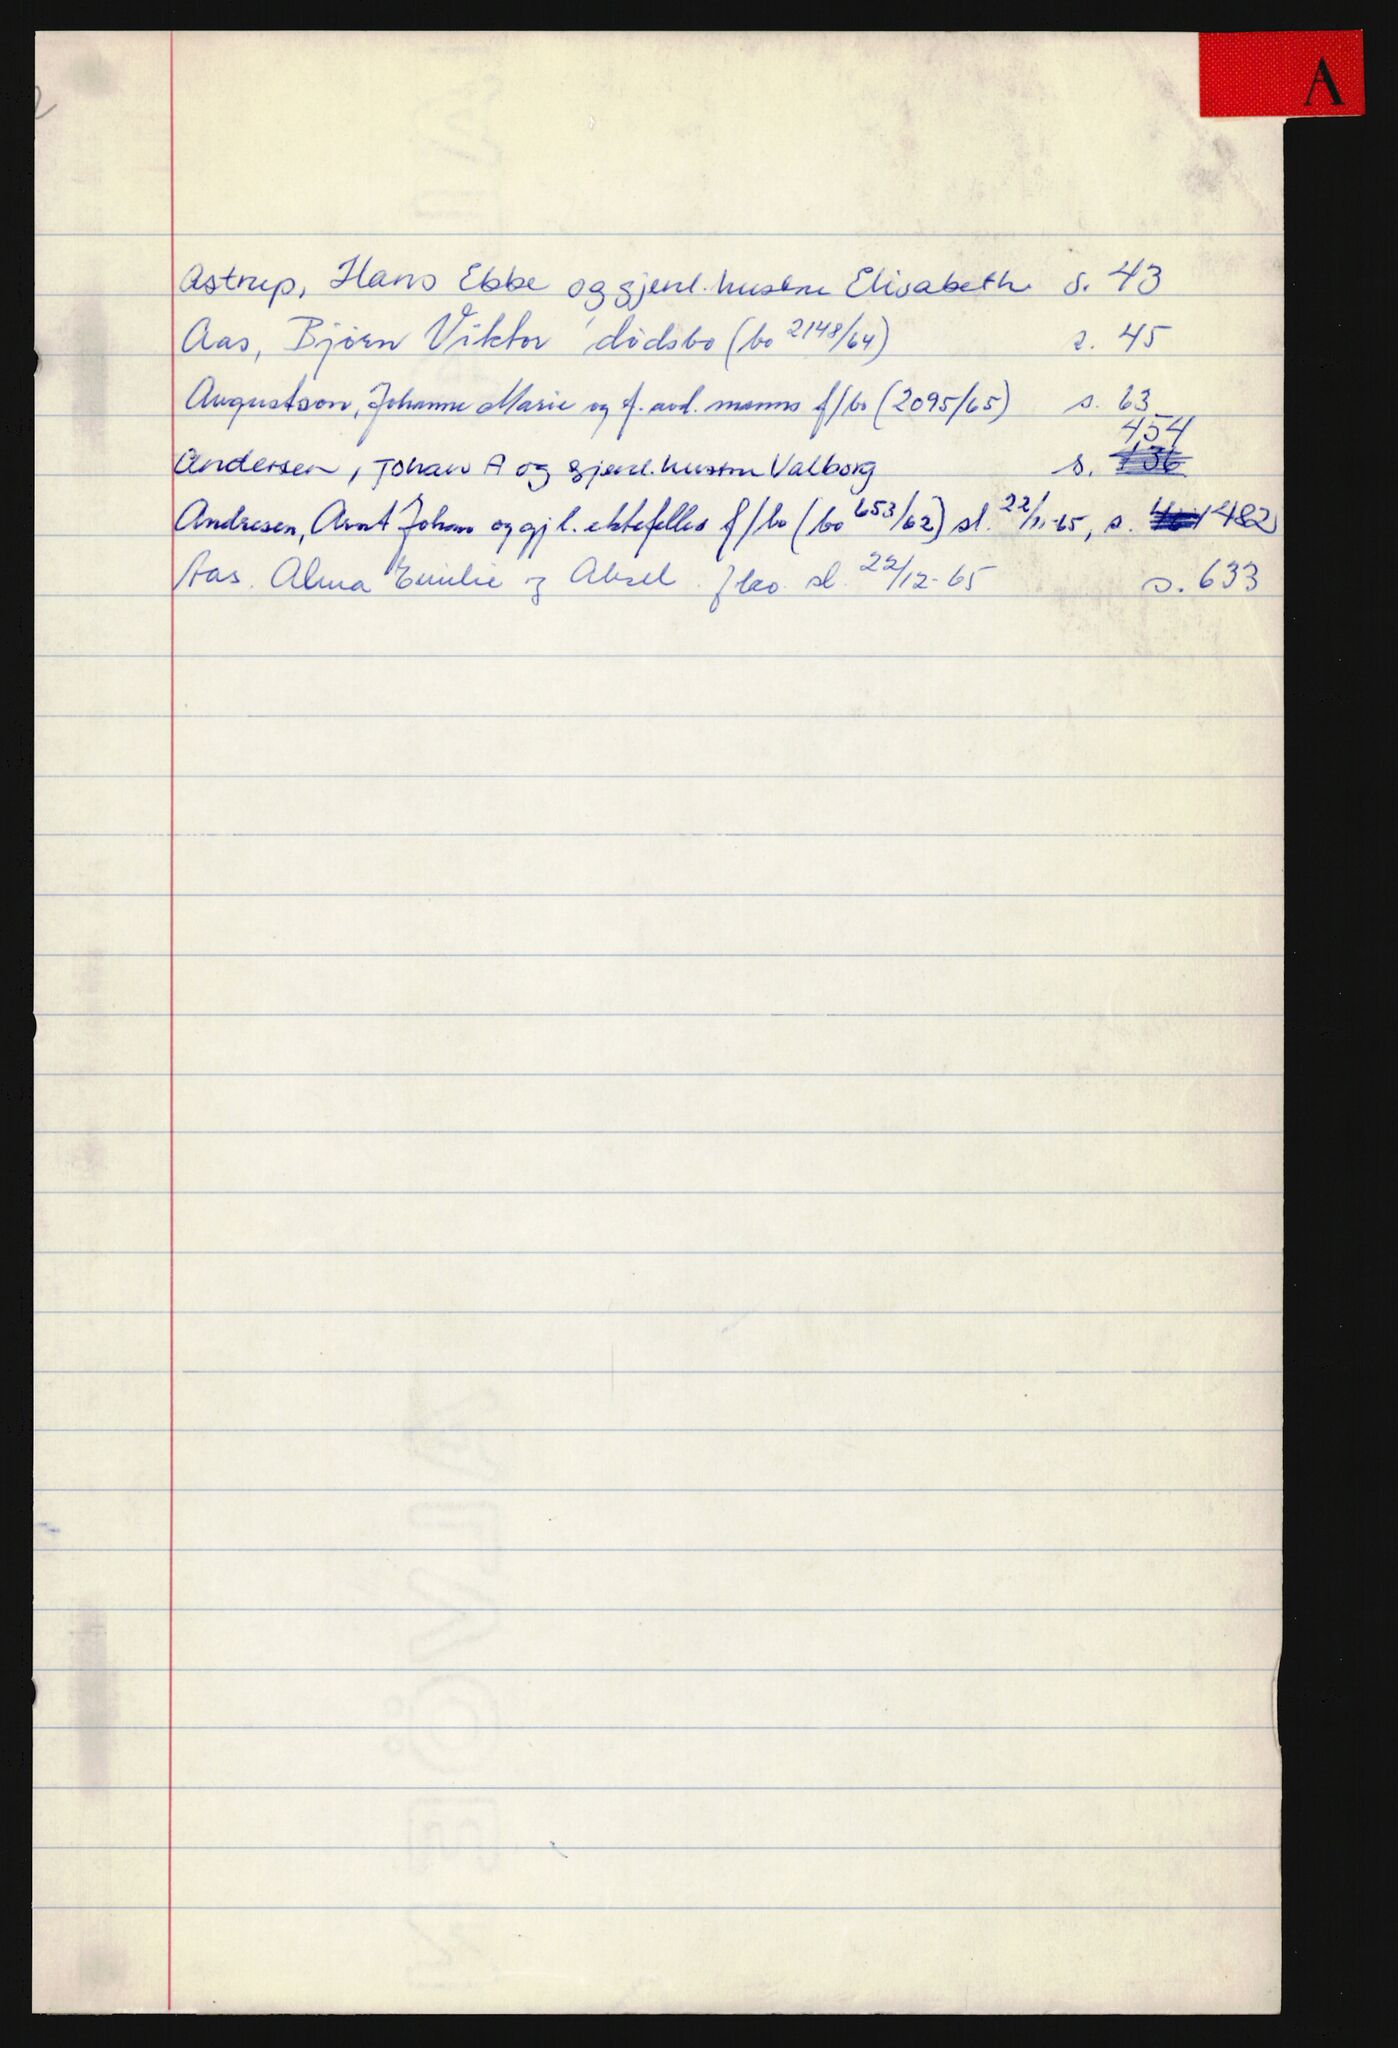 A
Astrup, Hans Ebbe og gjenl. hustru Elisabeth s. 43
Aas, Bjørn Viktor dødsbo (bo 2148/64) s. 45
Augustson, Johanne Marie og f. avd. manns f/bo (2095/65) s. 63
454
Andersen, Johan A og gjenl. hustru Valborg s. 136
Andresen, Arnt Johan og gj l. ektefelles f/bo (bo 653/62) sl. 22/11-65, s. 482
Aas. Alma Emilie og Aksel f bo. sl. 22/12-65 s. 633